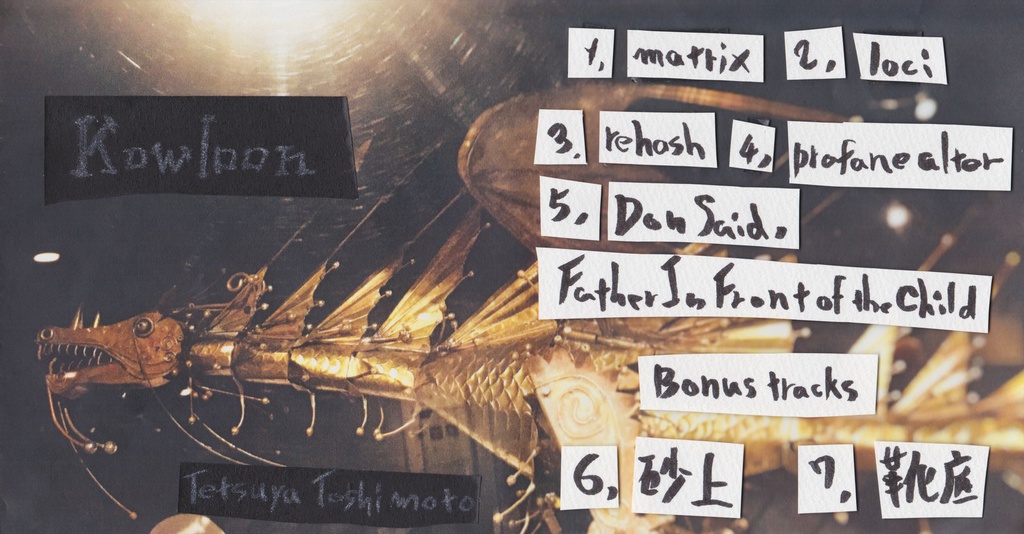 Kowloon
Tetsuya Toshimoto
1, matrix 2, loci
3. rehash 4, profane alter
5, Don Said,
Father In Front of the Child
Bonus tracks
6, 砂上 7, 靴底